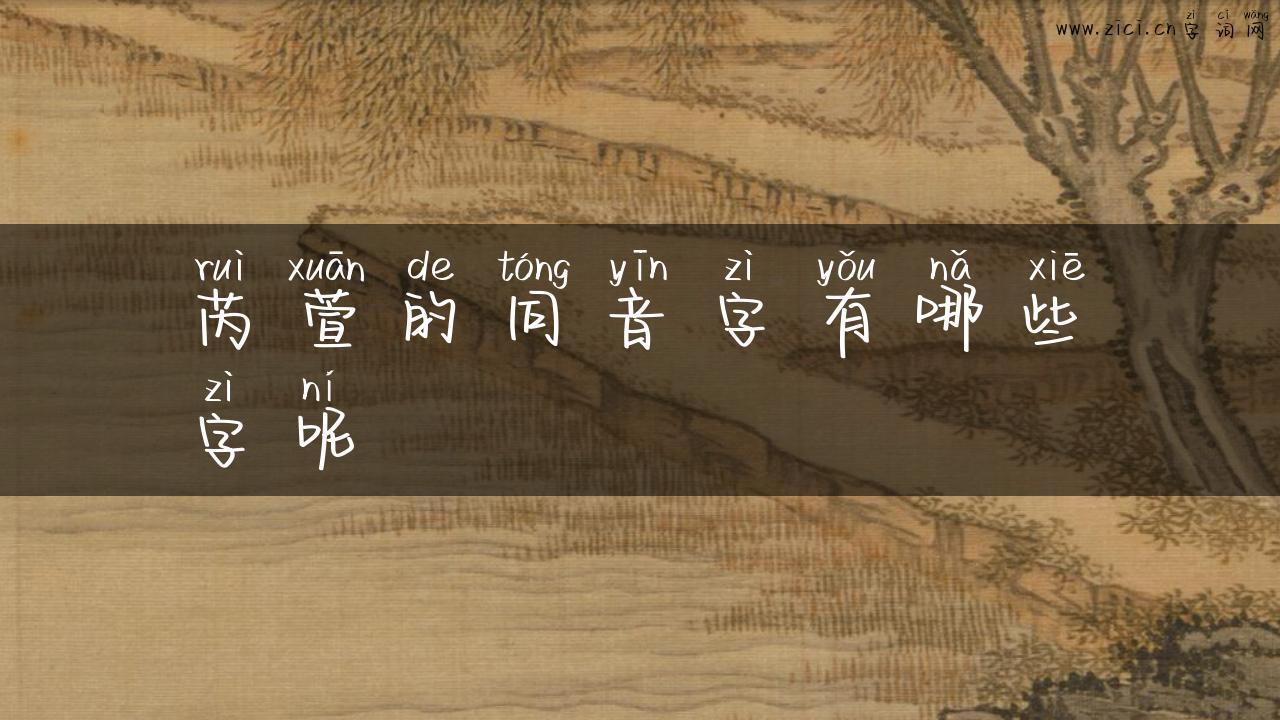 zì cí wǎng
www.zici.cn字词网
ruì xuān de tóng yīn zì yǒu nǎ xiē
芮萱的同音字有哪些
zì ní
字呢